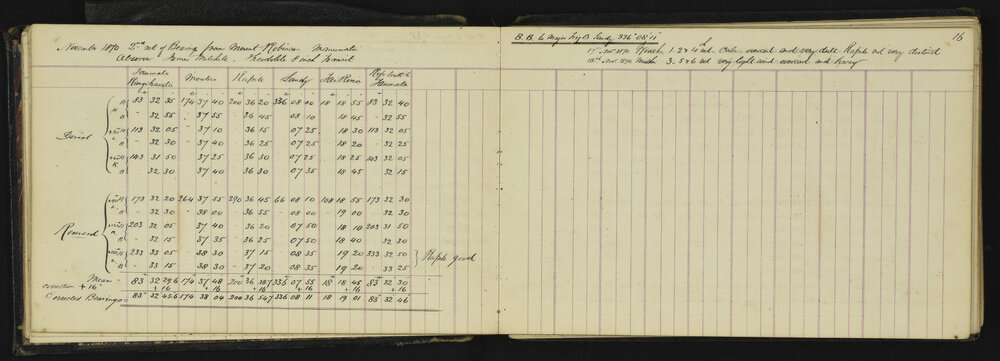 November 1870 2nd set of Bearings from Mount Robinson
Observer James Mitchell Theodolite 8 inch Transit
Montere Kapile Sandy
Direct A 83 32 35 174 37 40 200 36 20 336 08 00 18 18 55 83 32 40
B - 32 55 - 37 55 36 45 08 10 18 45 - 32 55
A 113 32 05 - 37 10 36 15 07 25 18 30 113 32 05
B - 32 30 - 37 40 36 25 07 25 18 20 - 32 25
A 143 31 50 37 25 36 30 07 25 18 25 143 32 05
32 30 37 40 36 30 07 35 18 45 32 15
Reversed A 173 32 20 264 37 55 290 36 45 66 08 10 108 18 55 173 32 30
B - 32 30 - 38 00 36 55 - 08 00 - 19 00 - 32 30
203 32 05 37 40 36 20 07 50 18 10 203 31 50
B - 32 15 37 35 - 36 25 07 50 18 40 - 32 30
233 33 05 - 38 30 37 15 - 08 35 19 20 333 32 50
B - 33 15 38 30 - 37 20 - 08 35 19 20 - 33 25
good
Mean 83 32 29.6 174 37 48 200 36 38.7 336 07 55 18 18 45 83 32 30
correction + 16 + 16 + 16 + 16 + 16 + 16
Corrected Bearings 83 32 45.6 174 38 04 200 36 54.7 336 08 11 18 19 01 83 32 46
16
B. B. to Major by B Sandy 336° 08' 11"
17th Nov 1870 1. 2 & 4 set Calm overcast and very dull very distinct
18th Nov 1870 3. 5 & 6 set very light and overcast and